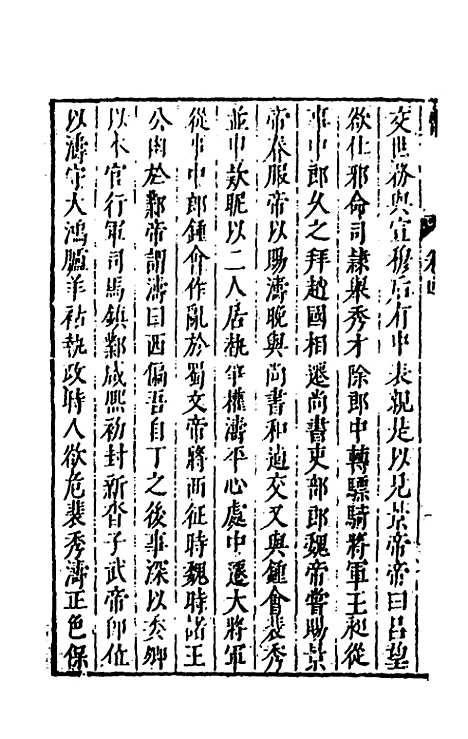 交世務與宣穆后有中表親是以見景帝帝曰呂望
欲仕邪命司隸舉秀才除郎中轉驃騎將軍王昶從
事中郎久之拜趙國相遷尚書吏部郎魏帝嘗賜景
帝春服帝以賜濤晚與尚書和逌交又與鍾會裴秀
並申款昵以二人居執爭權濤平心處中遷大將軍
從事中郎鍾會作亂於蜀文帝將西征時魏時諸王
公囱於鄴帝謂濤曰西偏吾自丁之後事深以委卿
以本官行軍司馬鎮鄴咸熙初封新沓子武帝即位
以濤守大鴻臚羊祜執政時人欲危裴秀濤正色保